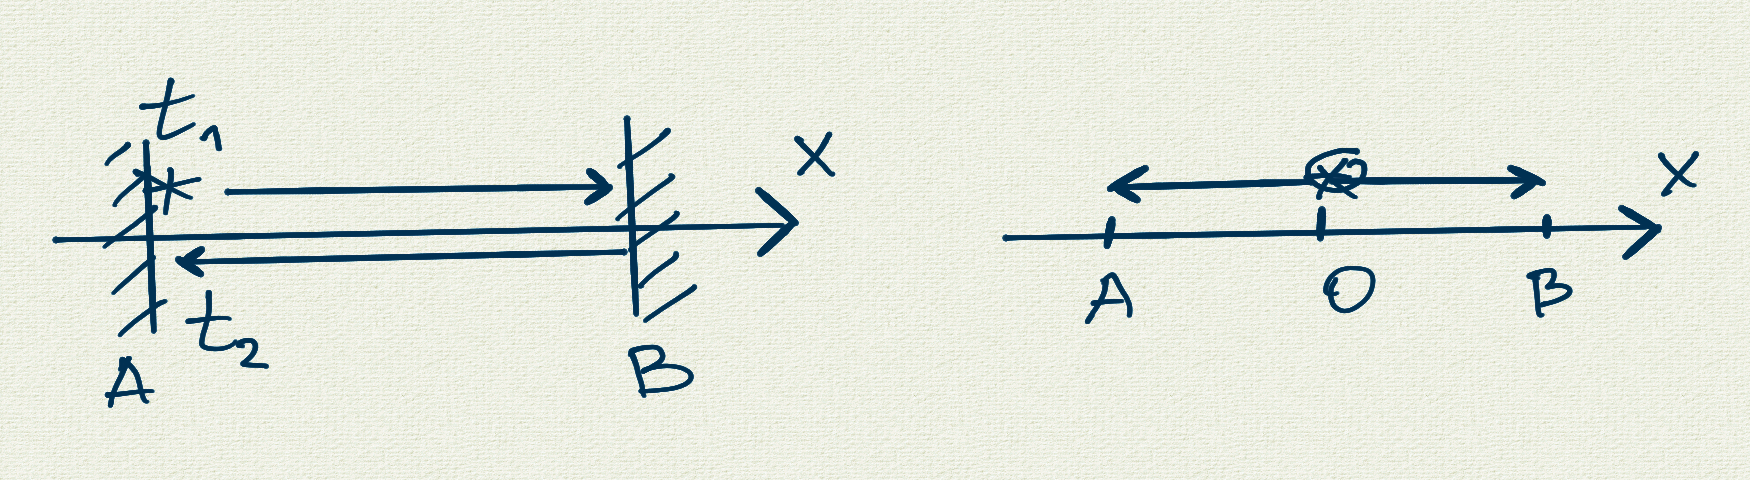 t₁
X
t₂
A
B
X
A
O
B